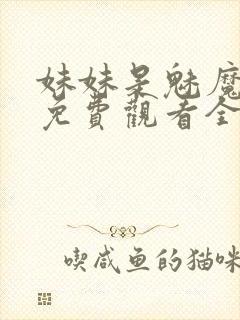 妹妹是魅魔
免費觀看全
喫咸鱼的猫咪